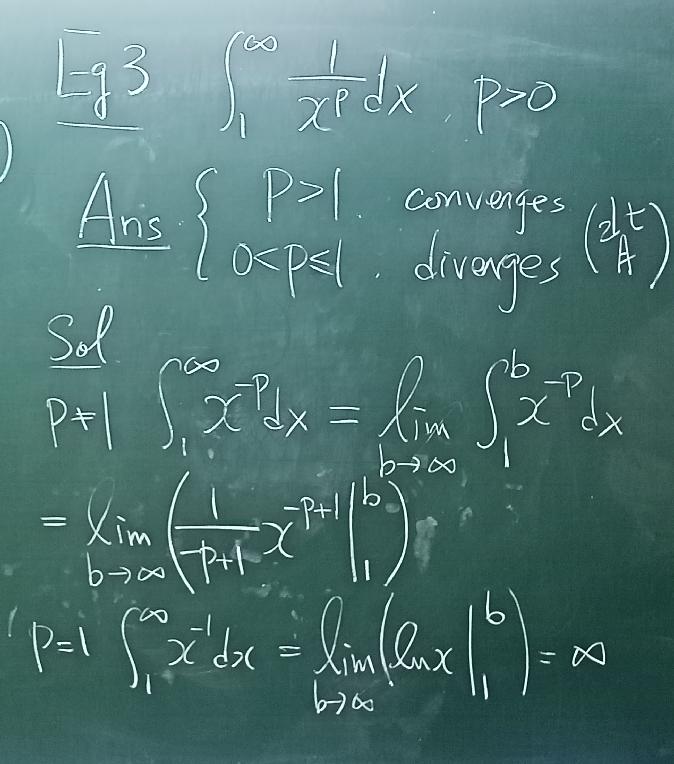 Eg 3 ∫₁^∞ 1/x^p dx, p>0
Ans { p>1. converges
0<p≤1. diverges
Sol
p≠1 ∫₁^∞ x^{-p} dx = lim_{b→∞} ∫₁^b x^{-p} dx
= lim_{b→∞} (1/(-p+1) x^{-p+1} |₁^b)
p=1 ∫₁^∞ x^{-1} dx = lim_{b→∞} (ln x |₁^b) = ∞